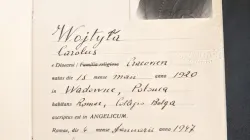 Wojtyła
Carolus
e Dioecesi (Familia religiosa) Cracovien
natus die 18 mense maii anno 1920
in Wadowice, Polonia
habitans Romae, Collegio Belga
inscriptus est in ANGELICUM.
Romae, die 4 Januarii 1947